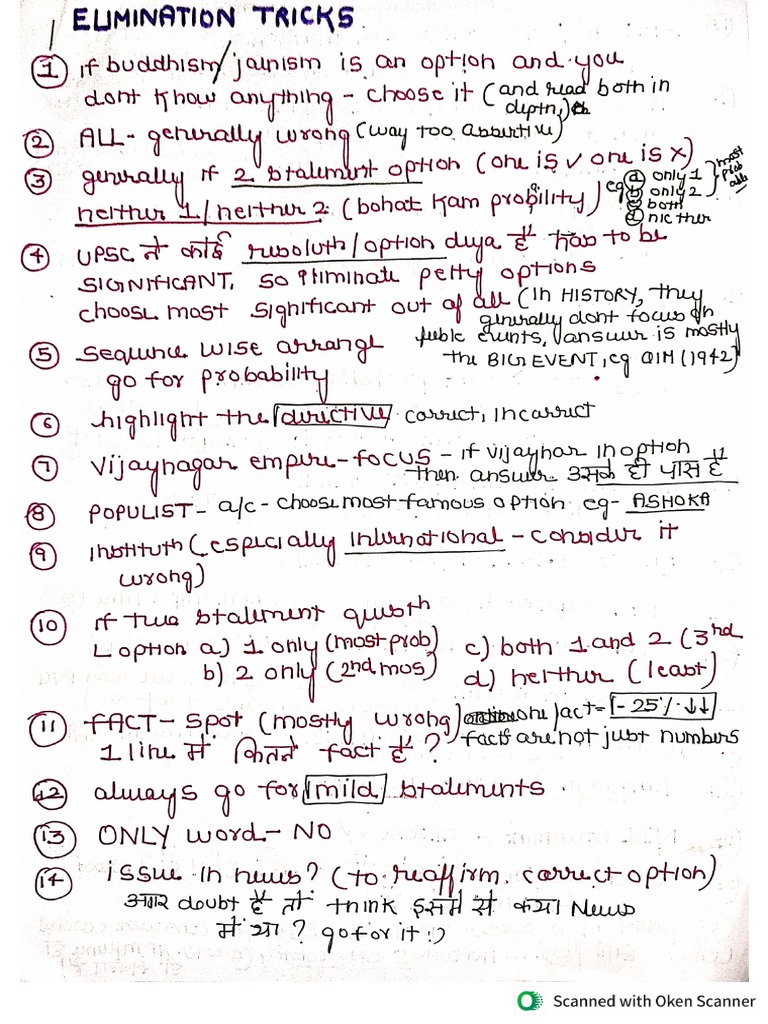 ELIMINATION TRICKS
① if buddhism/jainism is an option and you
dont know anything - choose it (and read both in
deptn,)
② ALL - generally wrong (way too assertive)
③ generally if 2 statement option (one is ✓ one is ×)
neither 1/neither 2 (bohat kam probility)
eg ⓐ only 1
ⓑ only 2
ⓒ both
ⓓ nicther
most
prob
able
④ UPSC ने कोई resoluth/option diya है has to be
SIGNIFICANT, so eliminate petty options
choose most significant out of all (In HISTORY, they
generally dont focus on
feeble events, answer is mostly
the BIG EVENT, eg QIM (1942)
⑤ sequence wise arrange
go for probability
⑥ highlight the directive correct, incorrect
⑦ vijaynagar empire - focus - if vijaynar in option
then answer उसके ही पास है
⑧ POPULIST - a/c - choose most famous option eg - ASHOKA
⑨ instituth (especially international - consider it
wrong)
⑩ if two statement questh
↳ option a) 1 only (most prob)
b) 2 only (2nd mos)
c) both 1 and 2 (3rd
d) neither (least)
⑪ FACT - spot (mostly wrong) one fact = - 25% ↓↓
1 line में कितने fact है ?
facts are not just numbers
⑫ always go for mild statements
⑬ ONLY word - NO
⑭ issue in news? (to reaffirm correct option)
अगर doubt है तो think इसमें से क्या News
में था ? go for it :)
Scanned with Oken Scanner